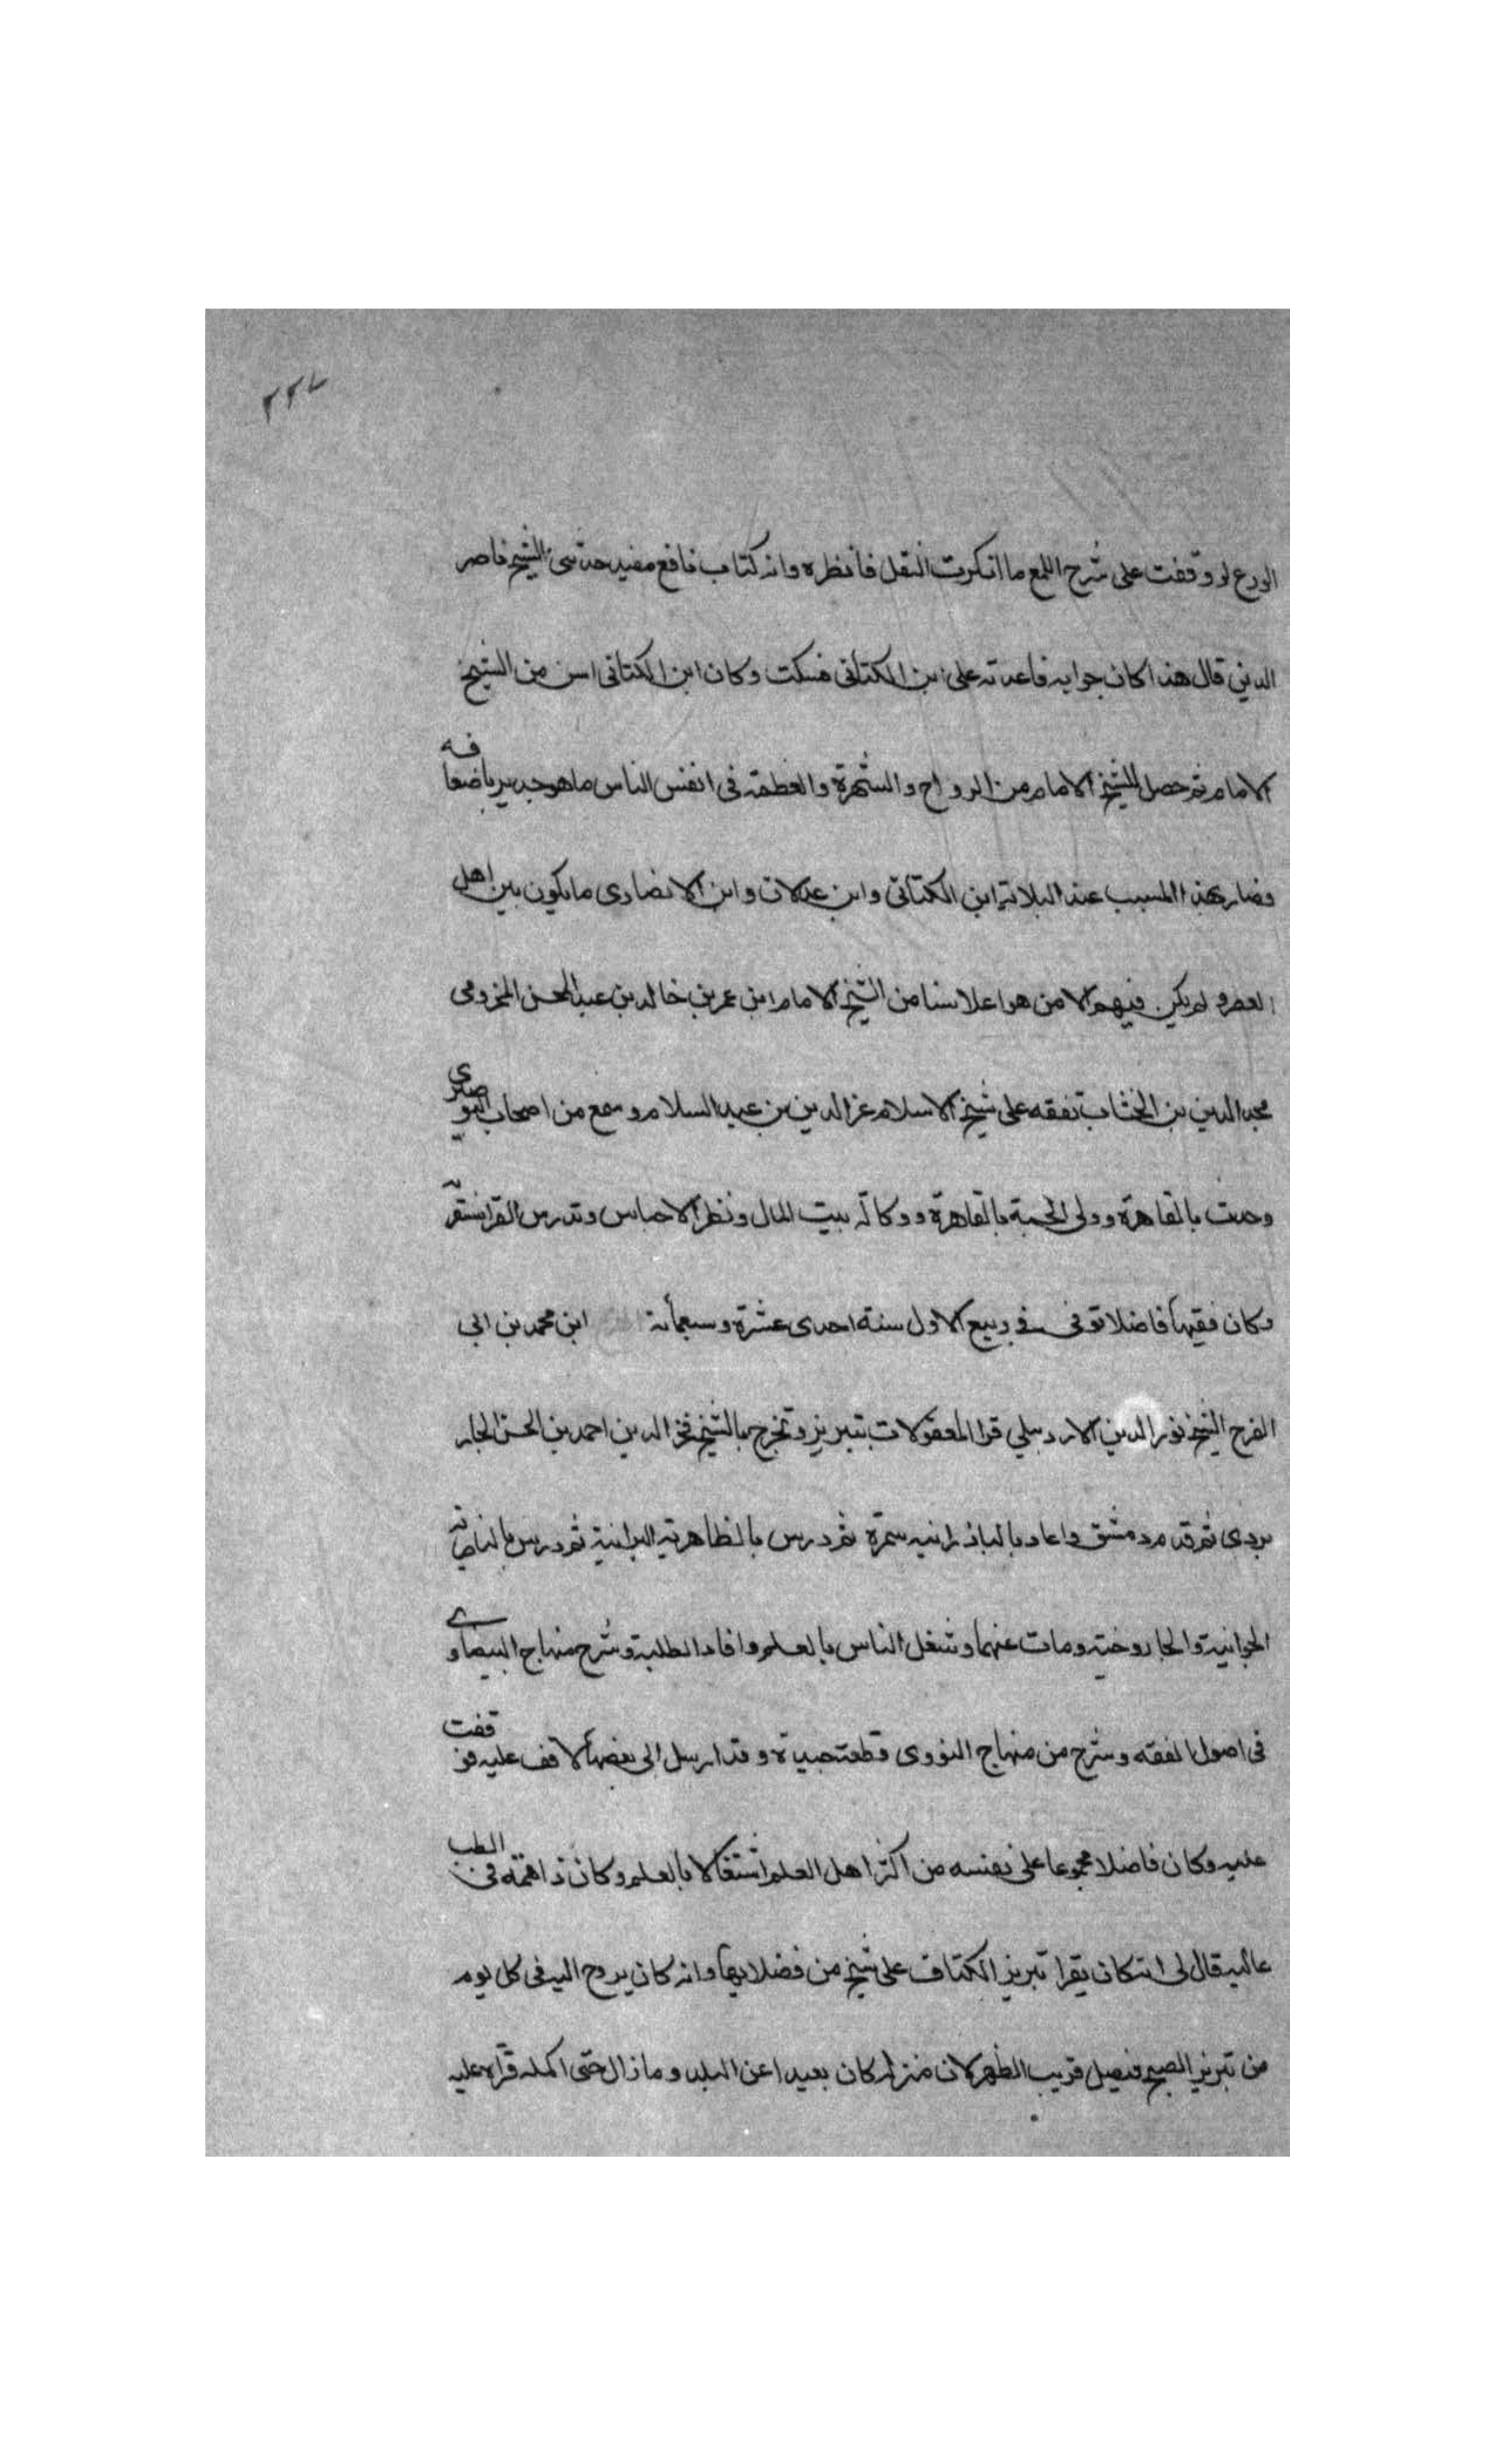 ٢٢٧
الورع لو وقفت على شرح اللمع ما انكرت النقل فانظره وانه كتاب نافع مفيد حدثنى الشيخ ناصر
الدين قال هذا كان جوابه فاعدته على ابن الكتانى فسكت وكان ابن الكتانى اسن من الشيخ
الامام ثم حصل للشيخ الامام من الرواج والشهرة والعظمة فى انفس الناس ما هو جدير باضعافه
فصار بهذا السبب عند الثلاثة ابن الكتانى وابن عدلان وابن الانصارى ما يكون بين اهل
العصر و لم يكن فيهم الا من هو اعلا سنا من الشيخ الامام ابن عمر بن خالد بن عبد المحسن المخزومى
مجد الدين بن الخشاب تفقه على شيخ الاسلام عز الدين بن عبد السلام وسمع من اصحاب البوصيرى
وحدث بالقاهرة وولى الحسبة بالقاهرة ووكالة بيت المال ونظر الاحباس وتدريس القراسنقرية
وكان فقيها فاضلا توفى فى ربيع الاول سنة احدى عشرة وسبعمأئة ابن محمد بن ابى
الفرج الشيخ نور الدين الاردبيلي قرا المعقولات بتبريز وتخرج بالشيخ فخر الدين احمد بن الحسن الجار
بردى ثم قدم دمشق واعاد بالباذرانيه ثم درس بالظاهريه البرانية ثم درس بالناصرية
الجوانية والجاروخيه ومات عنهما وشغل الناس بالعلم وافاد الطلبة وشرح منهاج البيضاوے
فى اصول الفقه وشرح من منهاج النووى قطعة جيدة وقد ارسل الى بعضها لاقف عليه فوقفت
عليه وكان فاضلا مجموعا على نفسه من اكثر اهل العلم اشتغالا بالعلم وكان ذا همة فى الطلب
عاليه قال لى انه كان يقرا تبريز الكشاف على شيخ من فضلايها وانه كان يروح اليه فى كل يوم
من تبريز الصبح فيصل قريب الظهر لان منزله كان بعيدا عن البلد وما زال حتى اكمله قراه عليه